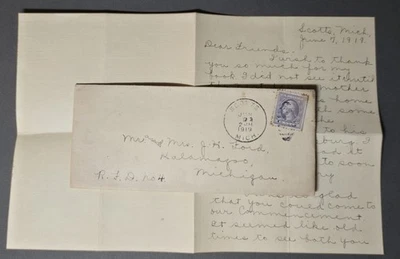 Scotts, Mich.
June 7, 1919.
Dear Friends,
I wish to thank
you so much for my
book I did not see it until
mother
home
some
to has
it
to soon
so glad
that you could come to
our Commencement
It seemed like old
times to see both you
23
1919
MICH
Mr and Mrs. J. H. Ford,
Kalamazoo,
Michigan
R.F.D. No 4